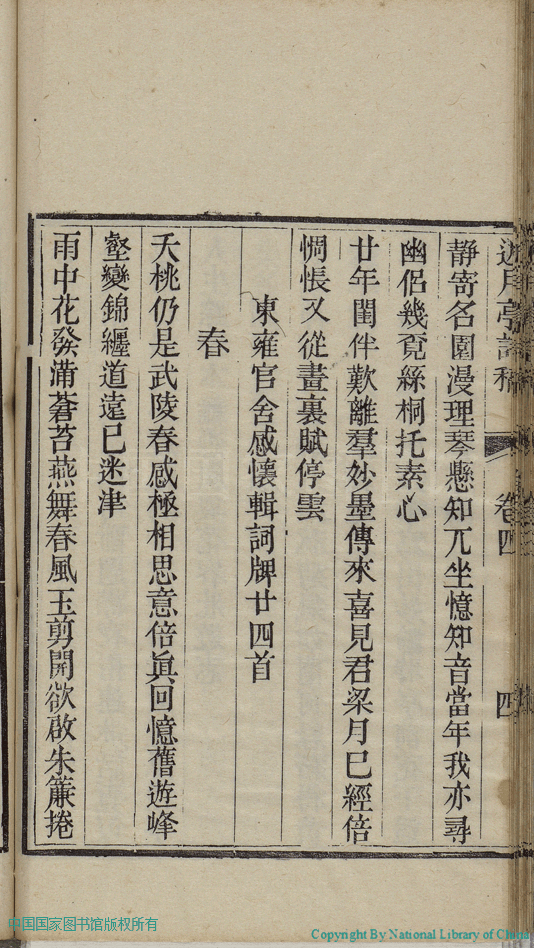 近月亭詩稿 卷四 四
靜寄名園漫理琴懸知兀坐憶知音當年我亦尋
幽侶幾覓絲桐托素心
廿年閨伴歎離羣妙墨傳來喜見君梁月已經倍
惆悵又從畫裏賦停雲
東雍官舍感懷輯詞牌廿四首
春
夭桃仍是武陵春感極相思意倍眞回憶舊遊峰
壑變錦纏道遠已迷津
雨中花發滿蒼苔燕舞春風玉剪開欲啟朱簾捲
中国国家图书馆版权所有
Copyright By National Library of China